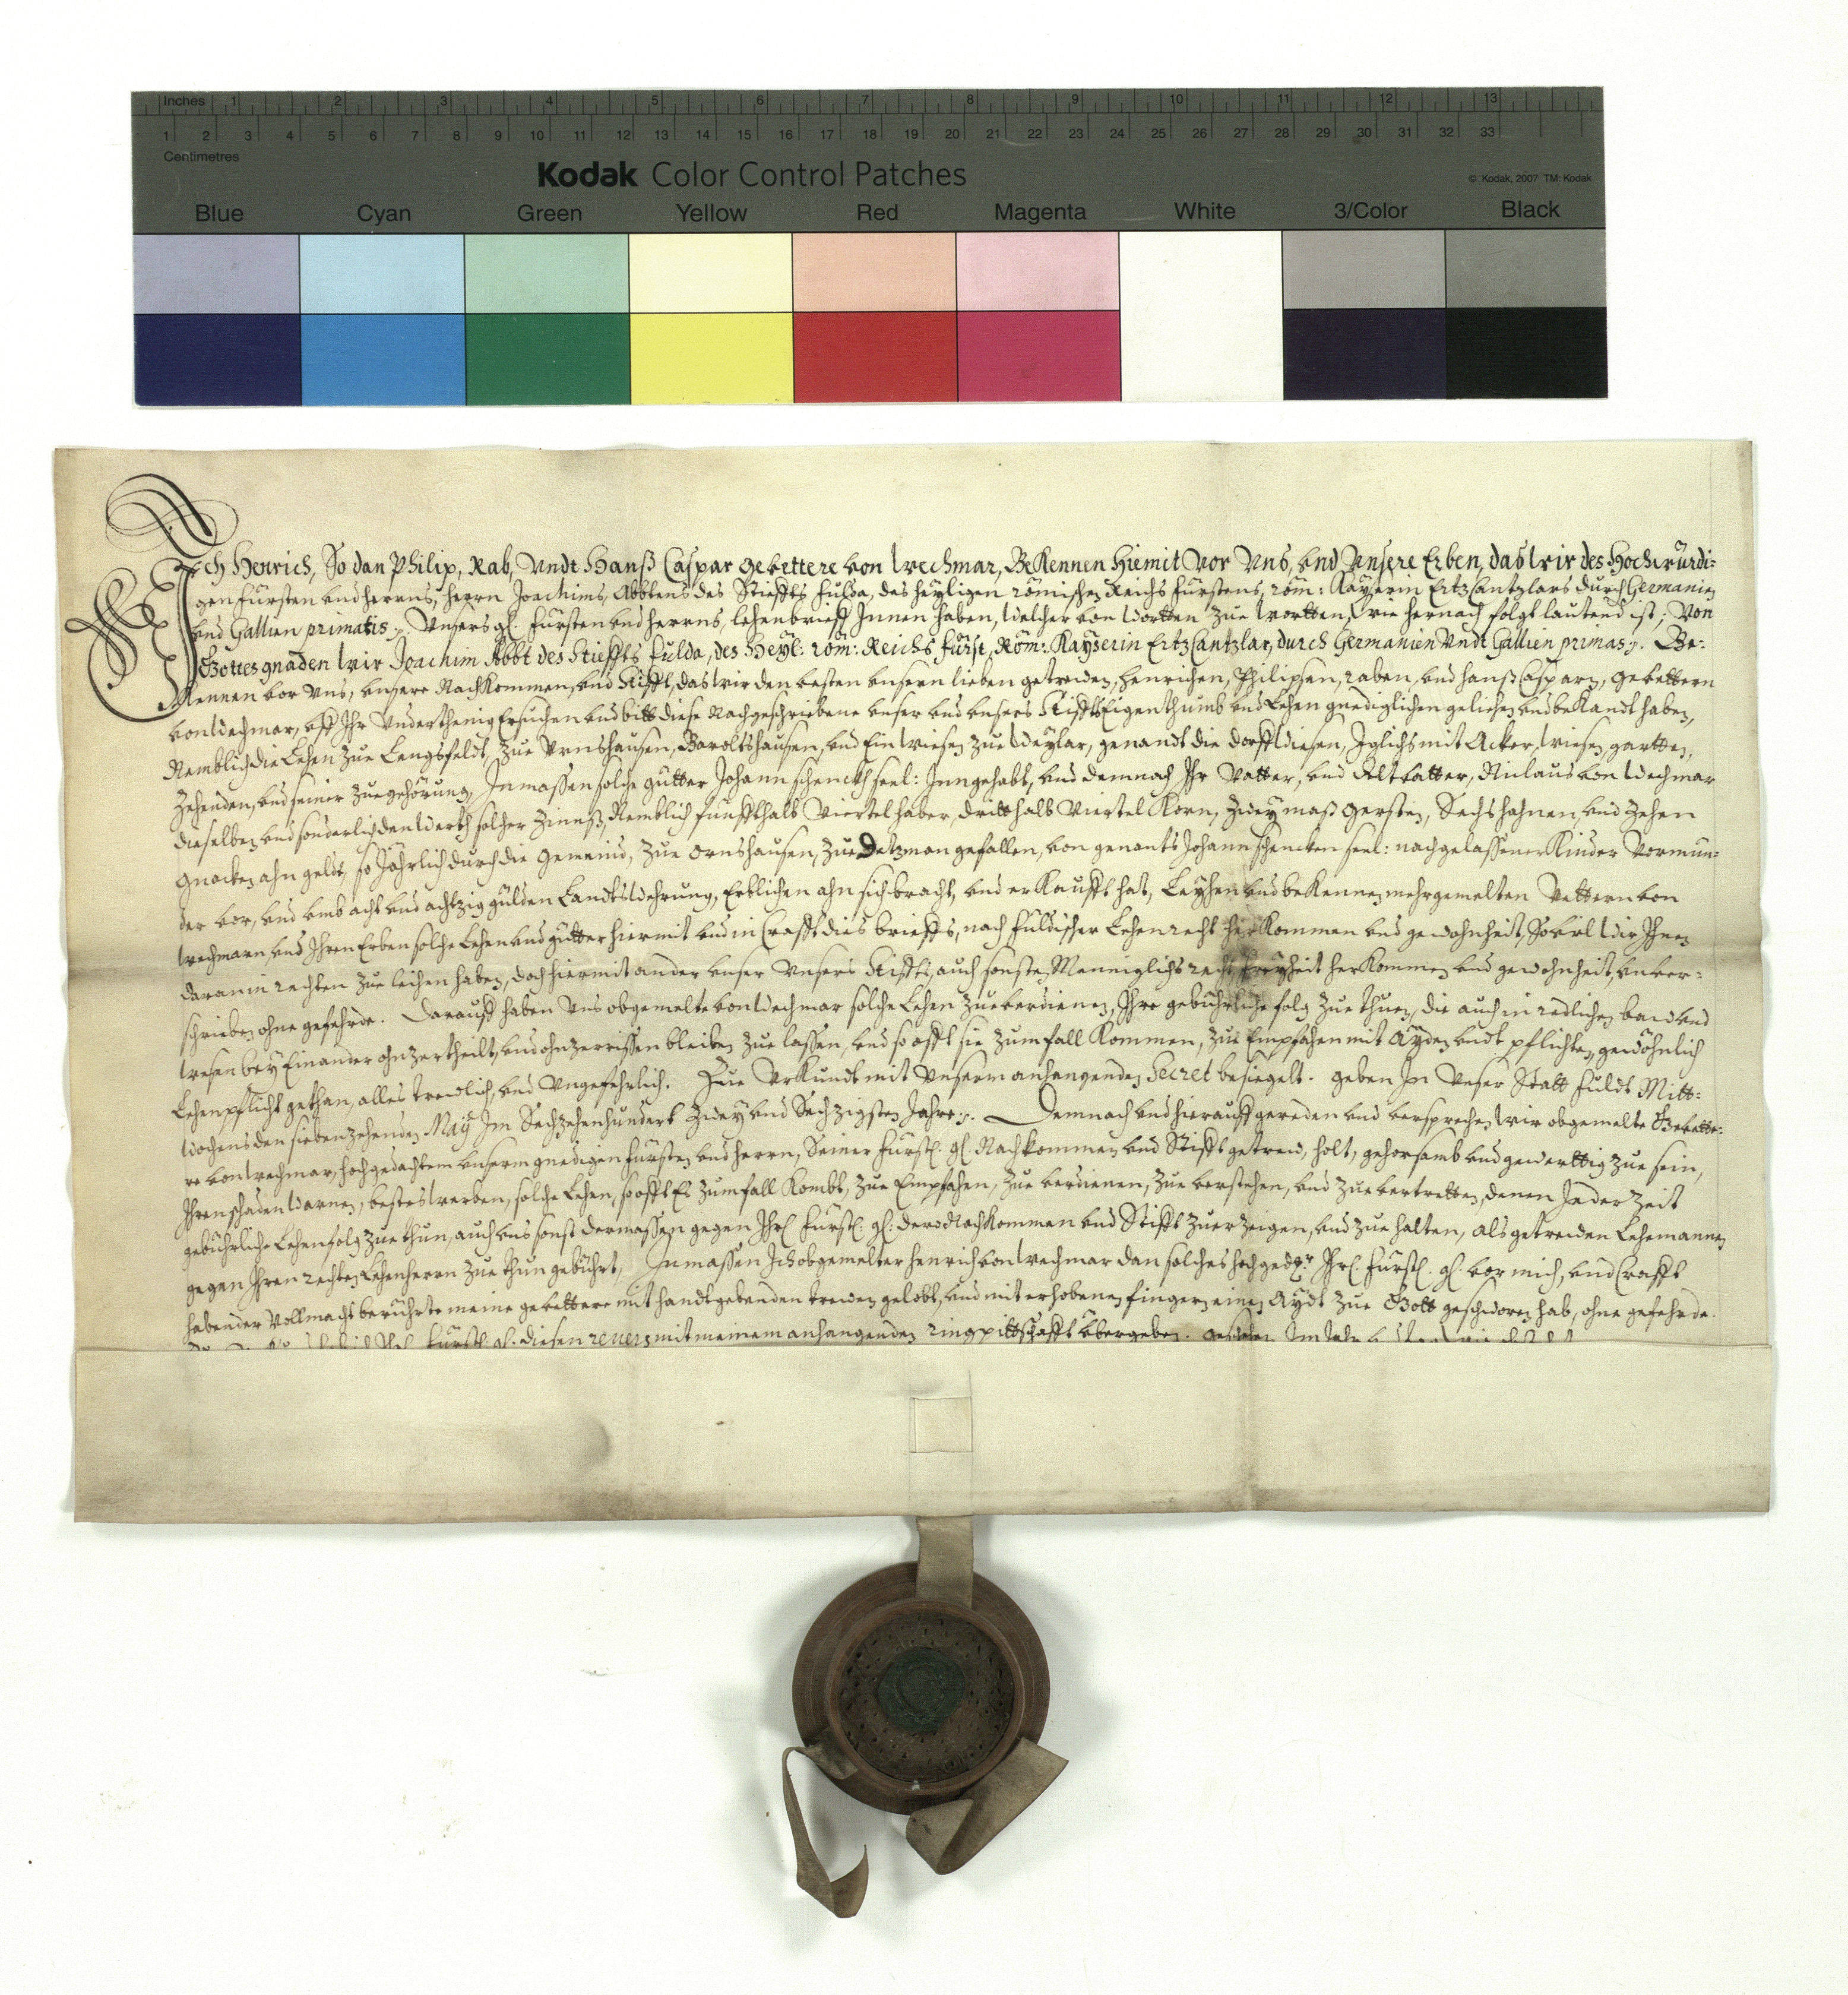 Inches 1 2 3 4 5 6 7 8 9 10 11 12 13
1 2 3 4 5 6 7 8 9 10 11 12 13 14 15 16 17 18 19 20 21 22 23 24 25 26 27 28 29 30 31 32 33
Centimetres
Kodak Color Control Patches © Kodak, 2007 TM: Kodak
Blue Cyan Green Yellow Red Magenta White 3/Color Black
Ich Henrich, So dan Philip, Rab, Vndt Hanß Caspar gevettere von Wechmar, BeKennen Hiemit Vor Vns, vnd Vnsere Erben, das wir des Hochwürdi-
gen fürsten vnd herrns, herrn Joachims, Abbtens des Stieffts fulda, des heyligen römischen Reichs fürstens, röm: Kayserin ErtzCantzlars durch Germanien
vnd Gallien primatis ꝛ. Vnsers gl. fürsten vnd herrns, lehenbrieff Innen haben, welcher von wortten zue wortten, wie hernach folgt lautend ist; Von
Gottes gnaden wir Joachim Abbt des Stieffts fulda, des Heyl: röm: Reichs fürst, Röm: Kayserin ErtzCantzlar, durch Germanien Vndt Gallien primas ꝛ. Be-
Kennen vor vns, vnsere NachKommen, vnd Stifft, das wir den vesten vnsern lieben getrewen, Henrichen, Philipsen, raben, vnd hanß Casparn, gevettern
von Wechmar, vff Ihr Vnderthenig Ersuchen vnd bitt diese Nachgeschriebene vnser vnd vnsers Stiffts Eigenthumb vnd Lehen gnediglichen geliehen vnd beKandt haben,
Nemblich die Lehen zue Lengsfeldt, zue Vrnshausen, Baroltshausen, vnd Ein wiesen zue Weylar, genandt die dorffwiesen, Iglichs mit Acker, wiesen, gartten,
Zehenden, vnd seiner zuegehörung, Inmassen solche gütter Johann schenckh seel: Inngehabt, vnd demnach Ihr Vatter, vnd Altvatter, Niclaus von Wechmar
dieselben vnd sonderlich den werth solcher Zinnß, Nemblich fünffthalb Viertel haber, dritthalb Viertel Korn, zwey maß gersten, Sechs hahnen, vnd Zehen
gnacken ahn geldt, so Jährlich durch die gemeind, zue Ornshausen, zue gefallen, von genants Johann schencken seel: nachgelassener Kinder Vormun-
der vor, vnd vmb acht vnd achtzig gülden Landtswehrung, Erblichen ahn sich bracht, vnd erKaufft hat, Leyhen vnd beKennen mehrgemelten Vettern von
Wechmarn, vnd Ihren Erben solche Lehen vnd gütter hiermit vnd in Crafft dies brieffs, nach fuldischer Lehenrecht herKommen vnd gewohnheit, Soviel wir Ihnen
daran in rechten zue leihen haben, doch hiermit an der vnser Vnsers Stiffts, auch sonsten Menniglichs recht freyheit herKommen vnd gewohnheit, vnver-
schrieben ohne gefehrde. Darauff haben Vns obgemelte von Wechmar solche Lehen zueverdienen, Ihre gebührliche folg zue thuen, die auch in redlichen baw vnd
wesen bey Einander ohnzertheilt, vnd ohnzerrissen bleiben zue lassen, vnd so offt sie zumfall Kommen, zue Empfahen mit Ayden vndt pflichten, gewöhnlich
Lehenpflicht gethan, alles trewlich, vnd Vngefehrlich. Zue VrKundt mit Vnserm anhangenden Secret besiegelt. geben In Vnser Statt fuldt Mitt-
wochens den siebenzehenden May Im Sechzehenhundert zwey vnd Sechzigsten Jahre ꝛ. Demnach vnd hierauff gereden vnd versprechen wir obgemelte Gevette-
re von Wechmar, hochgedachtem vnserm gnedigen fürsten vnd herrn, Seiner fürstl. gl. Nachkommen vnd Stifft getrew, holt, gehorsamb vnd gewerttig zue sein,
Ihren schaden warnen, bestes werben, solche Lehen, so offt Es zumfall Kombt, zue Empfahen, zue verdienen, zue verstehen, vnd zue vertretten, denen Jederzeit
gebührliche Lehensfolg zue thun, auch vns sonst dermassen gegen Ihrl. fürstl: gl: dero NachKommen vnd Stifft zuerzeigen, vnd zue halten, als getrewen Lehemannen
gegen Ihren rechten Lehenherrn zue thun gebührt, Inmassen Ich obgemelter henrich von Wechmar dan solches hochgedr. Ihrl. fürstl. gl. vor mich, vnd Crafft
habender Vollmacht berührte meine gevettere mit handtgebenden trewen gelobt, vnd mit erhobenen fingern einen Aydt zue Gott geschworen hab, ohne gefehrde.
fürstl: gl: diesen revers mit meinem anhangenden ringpittschafft übergeben. geschehen Im Jahr